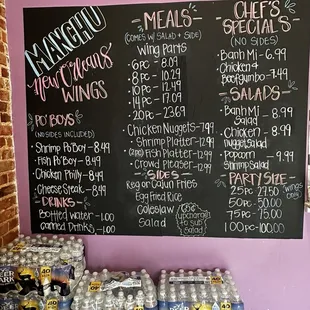 MANCHU
New Orleans
WINGS
PO'BOYS
(NO SIDES INCLUDED)
Shrimp Po'Boy - 8.49
Fish Po'Boy - 8.49
Chicken Philly - 8.49
Cheese Steak - 8.49
DRINKS
Bottled water - 1.00
Canned Drinks - 1.00
-MEALS-
(COMES W/ SALAD + SIDE)
Wing Parts
6pc - 8.09
8pc - 10.29
10pc - 12.49
14pc - 17.09
20pc - 23.69
Chicken Nuggets - 7.99
Shrimp Platter - 12.99
Fish Platter - 12.99
Crowd Pleaser - 12.99
SIDES
Reg or Cajun Fries
Egg Fried Rice
Coleslaw
Salad
CHEF'S
SPECIALS
(NO SIDES)
Banh Mi - 6.99
Chicken +
Beef Gumbo - 7.99
-SALADS-
Banh Mi - 8.99
Salad
Chicken - 8.99
nugget salad
Popcorn - 9.99
Shrimp Salad
PARTY SIZE
25pc 27.50
50pc - 50.00
75pc - 75.00
100pc - 100.00
(wings only)